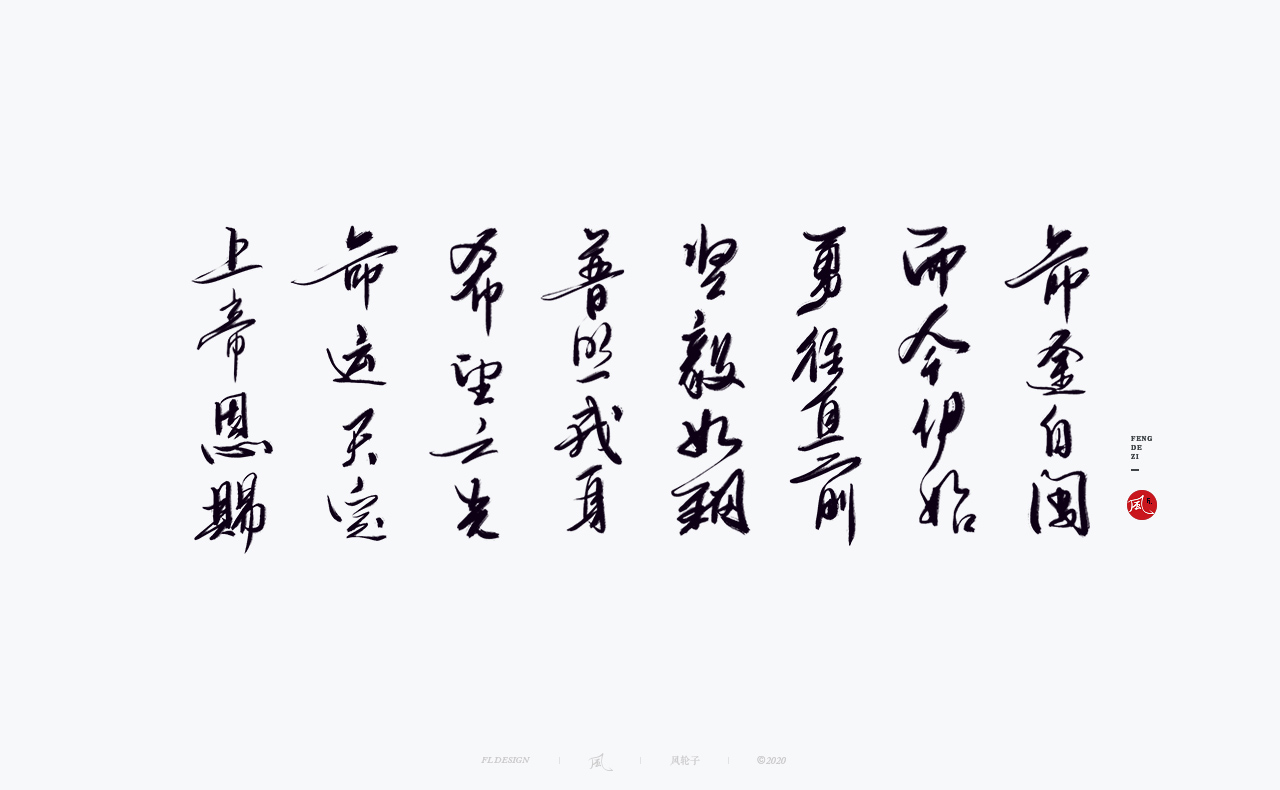 命途自闯
而今伊始
勇往直前
坚毅如鋼
普照我身
希望之光
命运天定
上帝恩賜
FENG
DE
ZI
風
FL DESIGN
風
风轮子
©2020